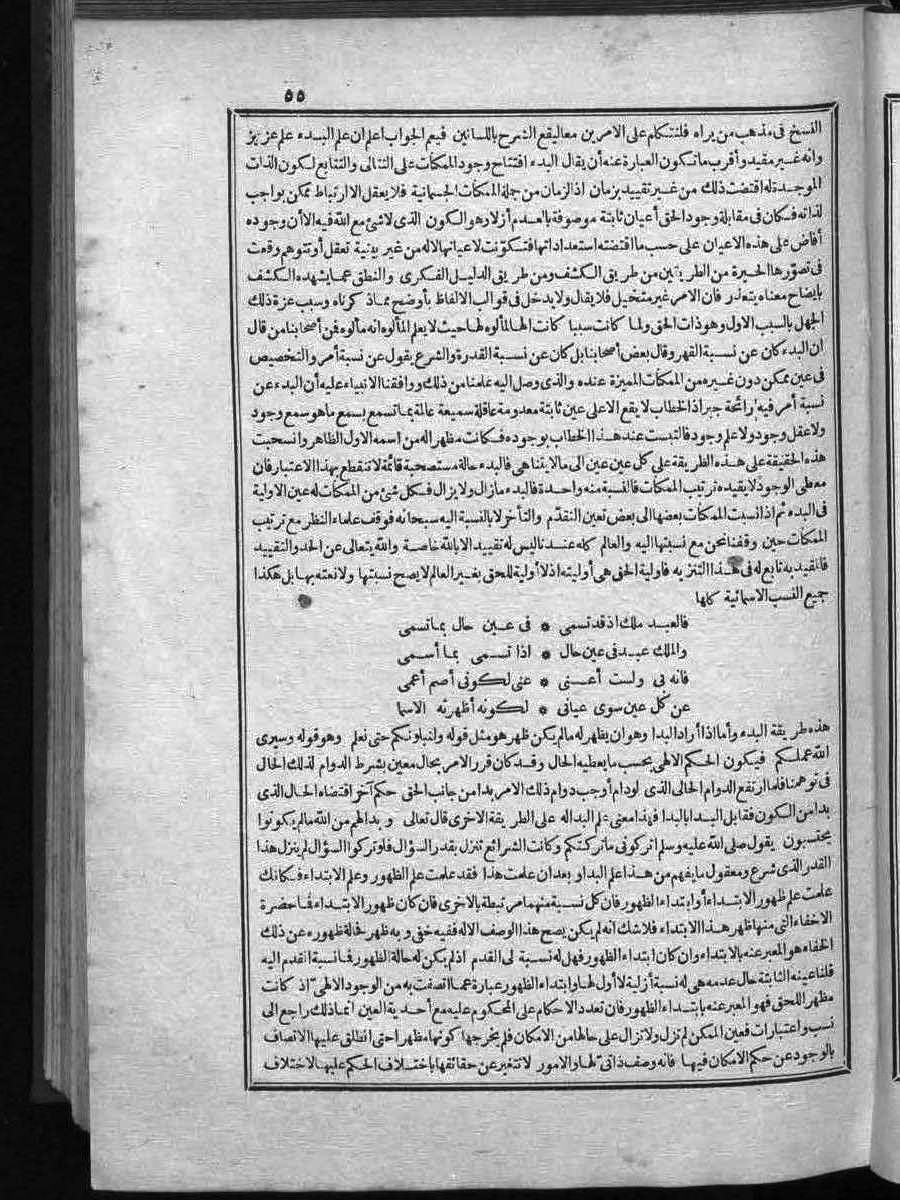 ٥٥
النسخ فى مذهب من يراه فلنتكلم على الامرين معا ليقع الشرح باللسانين فيعم الجواب اعلم ان علم البدء علم عزيز
وانه غير مقيد وأقرب ما تكون العبارة عنه أن يقال البدء افتتاح وجود الممكنات على التتالى والتتابع لكون الذات
الموجدة له اقتضت ذلك من غير تقييد بزمان اذ الزمان من جملة الممكنات الجسمانية فلا يعقل الا ارتباط ممكن بواجب
لذاته فكان فى مقابلة وجود الحق أعيان ثابتة موصوفة بالعدم أزلا وهو الكون الذى لا شئ مع الله فيه الا أن وجوده
أفاض على هذه الاعيان على حسب ما اقتضته استعداداتها فتكونت لاعيانها لا له من غير بينية تعقل أو تتوهم وقعت
فى تصورها الحيرة من الطريقين من طريق الكشف ومن طريق الدليل الفكرى والنطق عما يشهده الكشف
بايضاح معناه يتعذر فان الامر غير متخيل فلا يقال ولا يدخل فى قوالب الالفاظ بأوضح مما ذكرناه وسبب عزة ذلك
الجهل بالسبب الاول وهو ذات الحق ولما كانت سببا كانت الها لمألوه لها حيث لا يعلم المألوه انه مألوه فمن أصحابنا من قال
ان البدء كان عن نسبة القهر وقال بعض أصحابنا بل كان عن نسبة القدرة والشرع يقول عن نسبة أمر والتخصيص
فى عين ممكن دون غيره من الممكنات المميزة عنده والذى وصل اليه علمنا من ذلك ووافقنا الانبياء عليه أن البدء عن
نسبة أمر فيه رائحة جبر اذ الخطاب لا يقع الا على عين ثابتة معدومة عاقلة سميعة عالمة بما تسمع بسمع ما هو سمع وجود
ولا عقل وجود ولا علم وجود فالتبست عند هذا الخطاب بوجوده فكانت مظهرا له من اسمه الاول الظاهر وانسحبت
هذه الحقيقة على هذه الطريقة على كل عين عين الى ما لا يتناهى فالبدء حالة مستصحبة قائمة لا تنقطع بهذا الاعتبار فان
معطى الوجود لا يقيده ترتيب الممكنات فالنسبة منه واحدة فالبدء ما زال ولا يزال فكل شئ من الممكنات له عين الاولية
فى البدء ثم اذا نسبت الممكنات بعضها الى بعض تعين التقدم والتأخر لا بالنسبة اليه سبحانه فوقف علماء النظر مع ترتيب
الممكنات حين وقفنا نحن مع نسبتها اليه والعالم كله عندنا ليس له تقييد الا بالله خاصة والله يتعالى عن الحد والتقييد
فالمقيد به تابع له فى هذا التنزيه فاولية الحق هى أوليته اذ لا أولية للحق بغير العالم لا يصح نسبتها ولا نعته بها بل هكذا
جميع النسب الاسمائية كلها
فالعبد ملك اذ قد تسمى * فى عين حال بما تسمى
والملك عبد فى عين حال * اذا تسمى بما أسمى
فانه بى ولست أعنى * عنى لكونى أصم أعمى
عن كل عين سوى عيانى * لكونه أظهرته الاسما
هذه طريقة البدء وأما اذا أراد البدا وهو ان يظهر له ما لم يكن ظهر هو مثل قوله ولنبلونكم حتى نعلم وهو قوله وسيرى
الله عملكم فيكون الحكم الالهى بحسب ما يعطيه الحال وقد كان قرر الامر بحال معين بشرط الدوام لذلك الحال
فى توهمنا فلما ارتفع الدوام الحالى الذى لو دام أوجب دوام ذلك الامر بدا من جانب الحق حكم آخر اقتضاه الحال الذى
بدا من الكون فقابل البدا بالبدا فهذا معنى علم البدا له على الطريقة الاخرى قال تعالى وبدا لهم من الله ما لم يكونوا
يحتسبون يقول صلى الله عليه وسلم اتركونى ما تركتكم وكانت الشرائع تنزل بقدر السؤال فلو تركوا السؤال لم ينزل هذا
القدر الذى شرع ومعقول ما يفهم من هذا علم البدا وبعد ان علمت هذا فقد علمت علم الظهور وعلم الابتداء فكانك
علمت علم ظهور الابتداء أو ابتداء الظهور فان كل نسبة منهما مرتبطة بالاخرى فان كان ظهور الابتداء فما حضرة
الاخفاء التى منها ظهر هذا الابتداء فلا شك انه لم يكن يصح هذا الوصف الا له ففيه خفى وبه ظهر فحالة ظهوره عن ذلك
الخفاء هو المعبر عنه بالابتداء وان كان ابتداء الظهور فهل له نسبة لى القدم اذ لم يكن له حالة الظهور فما نسبة القدم اليه
قلنا عينه الثابتة حال عدمه هى له نسبة أزلية لا أول لها وابتداء الظهور عبارة عما اتصفت به من الوجود الالهى اذ كانت
مظهرا للحق فهو المعبر عنه بابتداء الظهور فان تعدد الاحكام على المحكوم عليه مع أحدية العين انما ذلك راجع الى
نسب واعتبارات فعين الممكن لم تزل ولا تزال على حالها من الامكان فلم يخرجها كونها مظهرا حتى انطلق عليها الاتصاف
بالوجود عن حكم الامكان فيها فانه وصف ذاتى لها والامور لا تتغير عن حقائقها باختلاف الحكم عليها لاختلاف